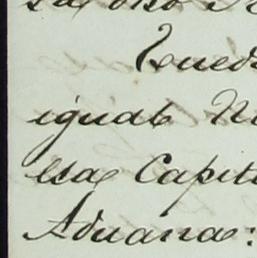 Qued
igual N
esa Capit
Aduana: